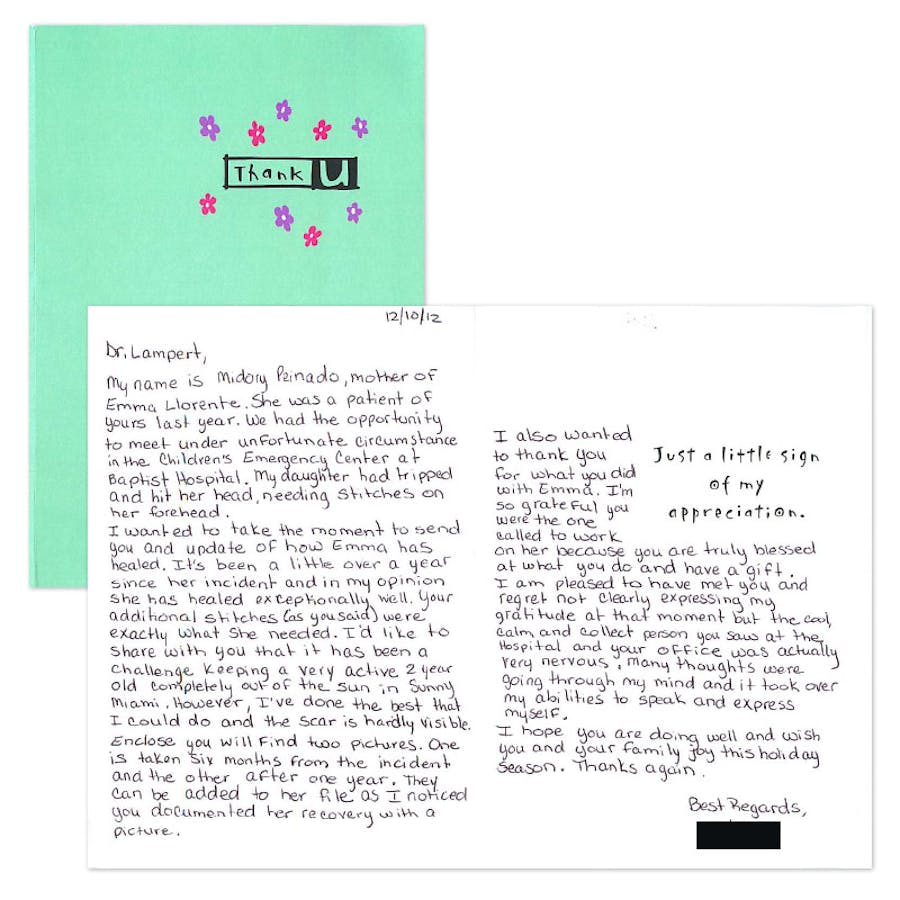 Thank U
12/10/12
Dr. Lampert,
My name is Midory Peinado, mother of
Emma Llorente. She was a patient of
yours last year. We had the opportunity
to meet under unfortunate circumstance
in the Children's Emergency Center at
Baptist Hospital. My daughter had tripped
and hit her head, needing stitches on
her forehead.
I wanted to take the moment to send
you and update of how Emma has
healed. It's been a little over a year
since her incident and in my opinion
she has healed exceptionally well. Your
additional stitches (as you said) were
exactly what she needed. I'd like to
share with you that it has been a
challenge keeping a very active 2 year
old completely out of the sun in sunny
Miami. However, I've done the best that
I could do and the scar is hardly visible.
Enclose you will find two pictures. One
is taken six months from the incident
and the other after one year. They
can be added to her file as I noticed
you documented her recovery with a
picture.
I also wanted
to thank you
for what you did
with Emma. I'm
so grateful you
were the one
called to work
on her because you are truly blessed
at what you do and have a gift.
I am pleased to have met you and
regret not clearly expressing my
gratitude at that moment but the cool,
calm, and collect person you saw at the
Hospital and your office was actually
very nervous. Many thoughts were
going through my mind and it took over
my abilities to speak and express
myself.
I hope you are doing well and wish
you and your family joy this holiday
season. Thanks again.
Best Regards,
Just a little sign
of my
appreciation.